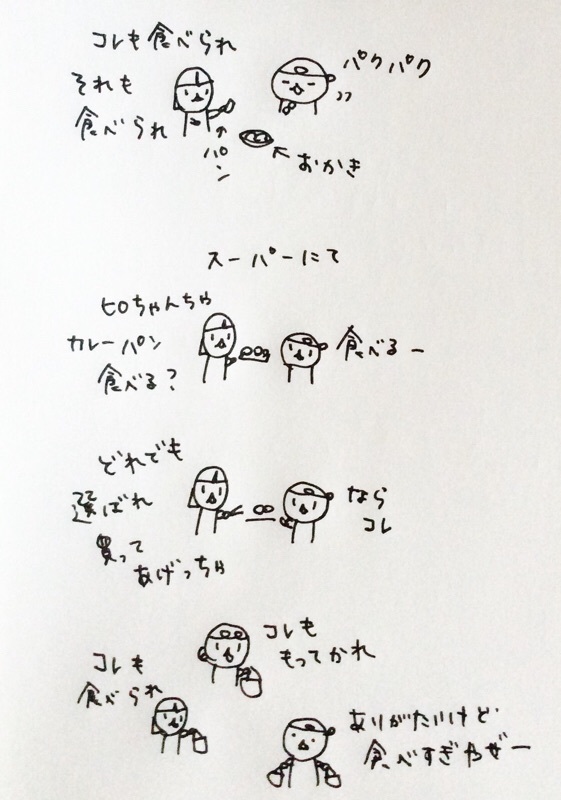 コレも食べられ
それも
食べられ
パクパク
パン
おかき
スーパーにて
ヒロちゃんちゃ
カレーパン
食べる？
食べるー
どれでも
選ばれ
買って
あげっちゃ
なら
コレ
コレも
もってかれ
コレも
食べられ
ありがたいけど
食べすぎやぜー